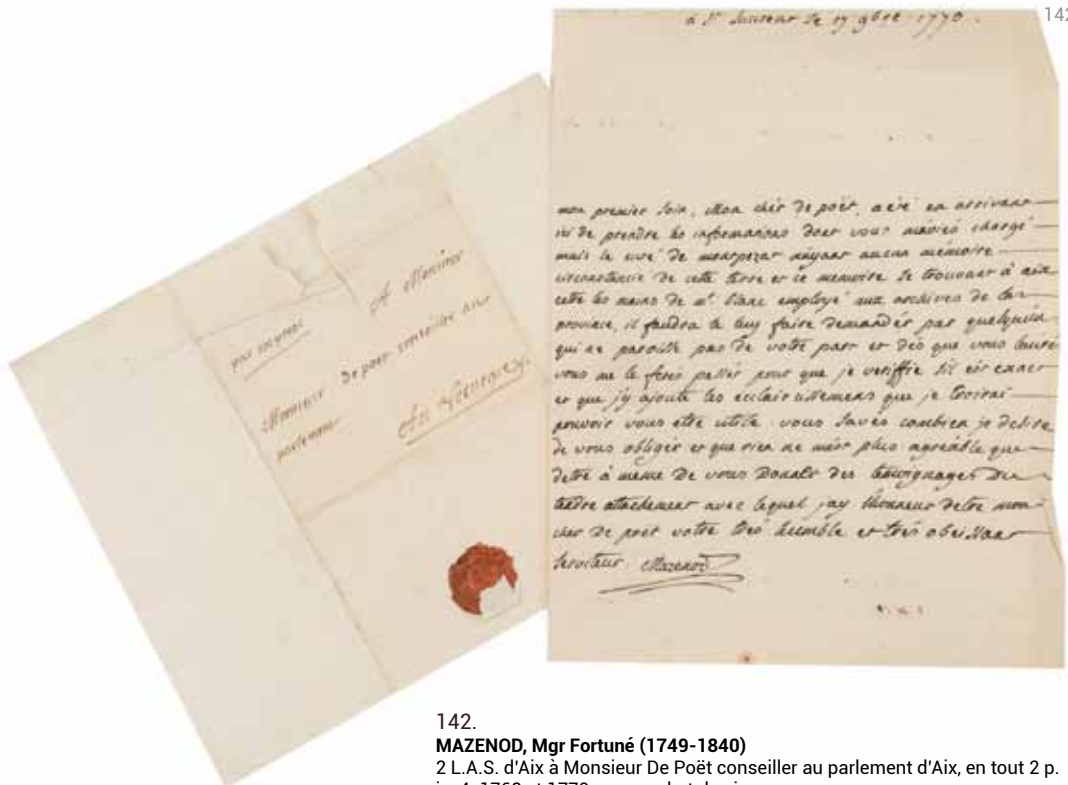 142
à St Sauveur le 17 9bre 1770.
mon premier soin, Mon chér De poët, a eté en arrivant
ici de prendre les informations dont vous m'aviés chargé
mais le curé de n'ayant aucun mémoire
circonstancié de cette terre et ce memoire se trouvant à aix
entre les mains de mr. blanc employé aux archives de la
province, il faudra le luy faire demander par quelqu'un
qui ne paroisse pas de votre part et dès que vous l'aurés
vous me le ferés passer pour que je veriffie s'il est exact
et que j'y ajoute les éclaircissemens que je croirai
pouvoir vous etre utile. vous savés combien je desire
de vous obliger et que rien ne m'est plus agréable que
detre à meme De vous Donner des temoignages Du
tendre attachement avec lequel jay lhonneur detre mon
cher De poët votre tres humble et très obeissant
serviteur. Mazenod
A Monsieur
Monsieur De poët conseiller au
parlement
142.
MAZENOD, Mgr Fortuné (1749-1840)
2 L.A.S. d'Aix à Monsieur De Poët conseiller au parlement d'Aix, en tout 2 p.